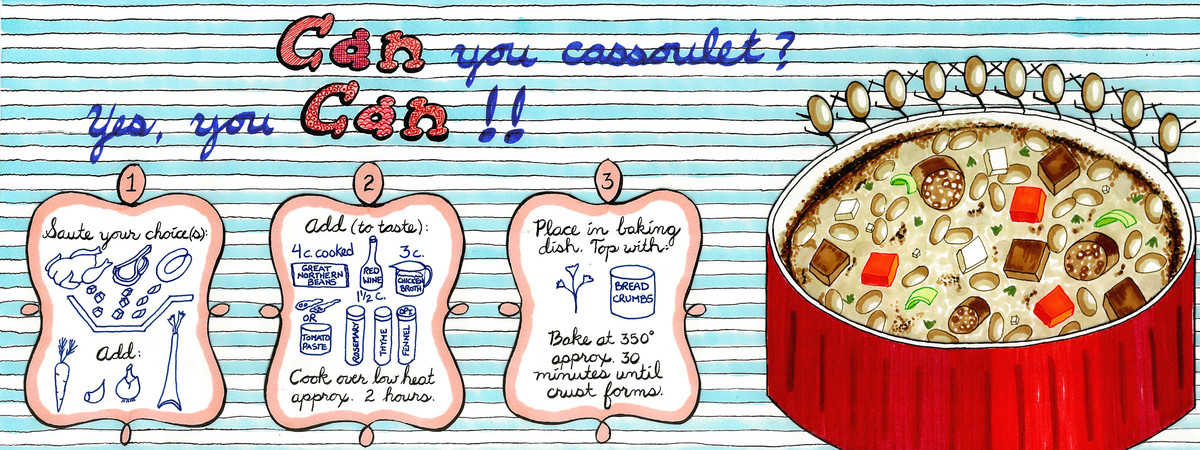 Can you cassoulet?
Yes, you Can!!
1
Saute your choice(s):
Add:
2
Add (to taste):
4 c. cooked
GREAT
NORTHERN
BEANS
RED
WINE
1 1/2 c.
3 c.
CHICKEN
BROTH
OR
TOMATO
PASTE
ROSEMARY
THYME
FENNEL
Cook over low heat
approx. 2 hours.
3
Place in baking
dish. Top with:
BREAD
CRUMBS
Bake at 350°
approx. 30
minutes until
crust forms.